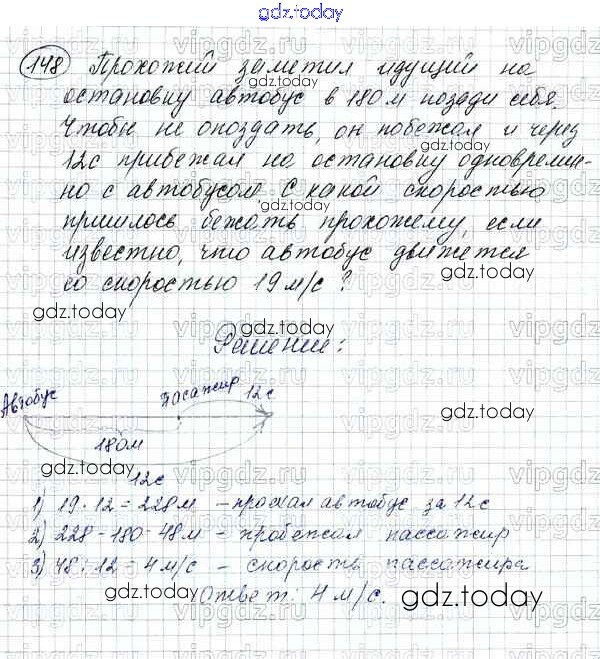 gdz.today
148 Прохожий заметил идущий на
остановку автобус в 180 м позади себя.
Чтобы не опоздать, он побежал и через
12с прибежал на остановку одновремен-
но с автобусом. С какой скоростью
пришлось бежать прохожему, если
известно, что автобус движется
со скоростью 19 м/с ?
gdz.today
Решение:
Автобус Пасажир 12с
180м
gdz.today
12с
1) 19 · 12 = 228м - проехал автобус за 12с
2) 228 - 180 = 48м - пробежал пассажир
3) 48 : 12 = 4 м/с - скорость пассажира
Ответ: 4 м/с. gdz.today